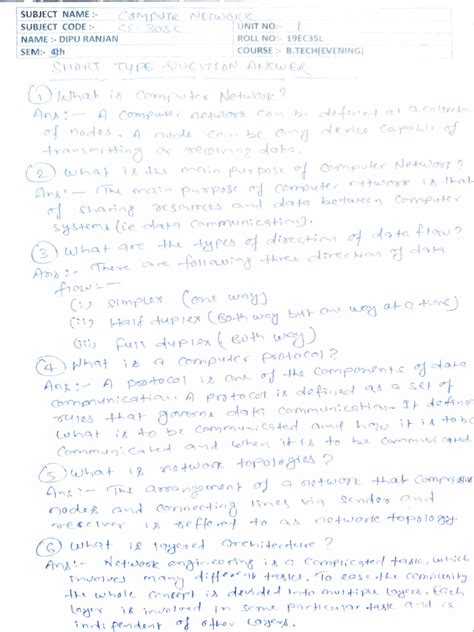 SUBJECT NAME :- COMPUTER NETWORK
SUBJECT CODE :- CS-305C UNIT NO:- 1
NAME :- DIPU RANJAN ROLL NO:- 19EC35L
SEM:- 4th COURSE :- B.TECH(EVENING)
SHORT TYPE QUESTION ANSWER
(1) What is Computer Network?
Ans:- A computer network can be defined as a collection
of nodes. A node can be any device capable of
transmitting or receiving data.
(2) What is the main purpose of Computer Network?
Ans:- The main purpose of computer network is that
of sharing resources and data between computer
systems (ie data communication).
(3) What are the types of direction of data flow?
Ans:- There are following three direction of data
flow:-
(i) Simplex (one way)
(ii) Half duplex (Both way but one way at a time)
(iii) Full duplex (Both way)
(4) What is a computer protocol?
Ans:- A protocol is one of the components of data
communication. A protocol is defined as a set of
rules that governs data communication. It defines
what is to be communicated and how it is to be
communicated and when it is to be communicated.
(5) What is network topologies?
Ans:- The arrangement of a network that comprises
nodes and connecting lines via sender and
receiver is reffered to as network topology.
(6) What is layered architecture?
Ans:- Network engineering is a complicated task, which
involves many different tasks. To ease the
the whole concept is devided into multiple layers. Each
layer is involved in some particular task and is
independent of other layers.